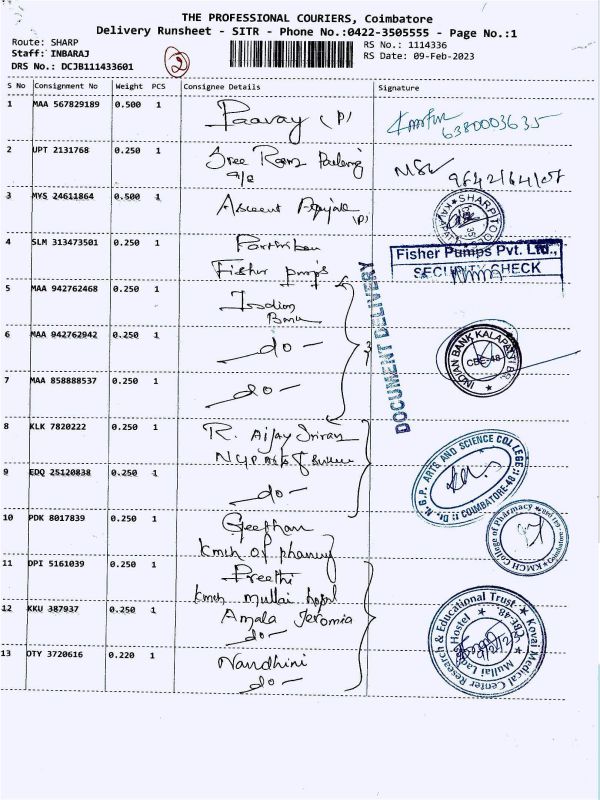 THE PROFESSIONAL COURIERS, Coimbatore
Delivery Runsheet - SITR - Phone No.:0422-3505555 - Page No.:1
Route: SHARP
RS No.: 1114336
Staff: INBARAJ
RS Date: 09-Feb-2023
DRS No.: DCJB111433601
2
S No Consignment No Weight PCS Consignee Details Signature
1 MAA 567829189 0.500 1 Paavay (P)
6380003635
2 UPT 2131768 0.250 1 Sree Ram
3 MYS 24611864 0.500 1 Ascent (P)
4 SLM 313473501 0.250 1
Fisher pumps
Fisher Pumps Pvt. Ltd.,
SECURITY CHECK
DOCUMENT DELIVERY
5 MAA 942762468 0.250 1 Indian
Bank
6 MAA 942762942 0.250 1 -do-
3
INDIAN BANK KALAPATTI BR.
CBE-48
7 MAA 858888537 0.250 1 -do-
8 KLK 7820222 0.250 1 R. Aijay Sriram
NGP Arts & Science
Dr. N.G.P. ARTS AND SCIENCE COLLEGE
COIMBATORE-48
9 EDQ 25120838 0.250 1 -do-
10 PDK 8017839 0.250 1 Geethan
kmch of pharmacy
KMCH College of Pharmacy
11 DPI 5161039 0.250 1 Preethi
kmch mullai hostel
12 KKU 387937 0.250 1 Amala Jeromia
-do-
Kovai Medical Center Research & Educational Trust
Mullai Ladies Hostel
CBE-48
13 OTY 3720616 0.220 1 Nandhini
-do-